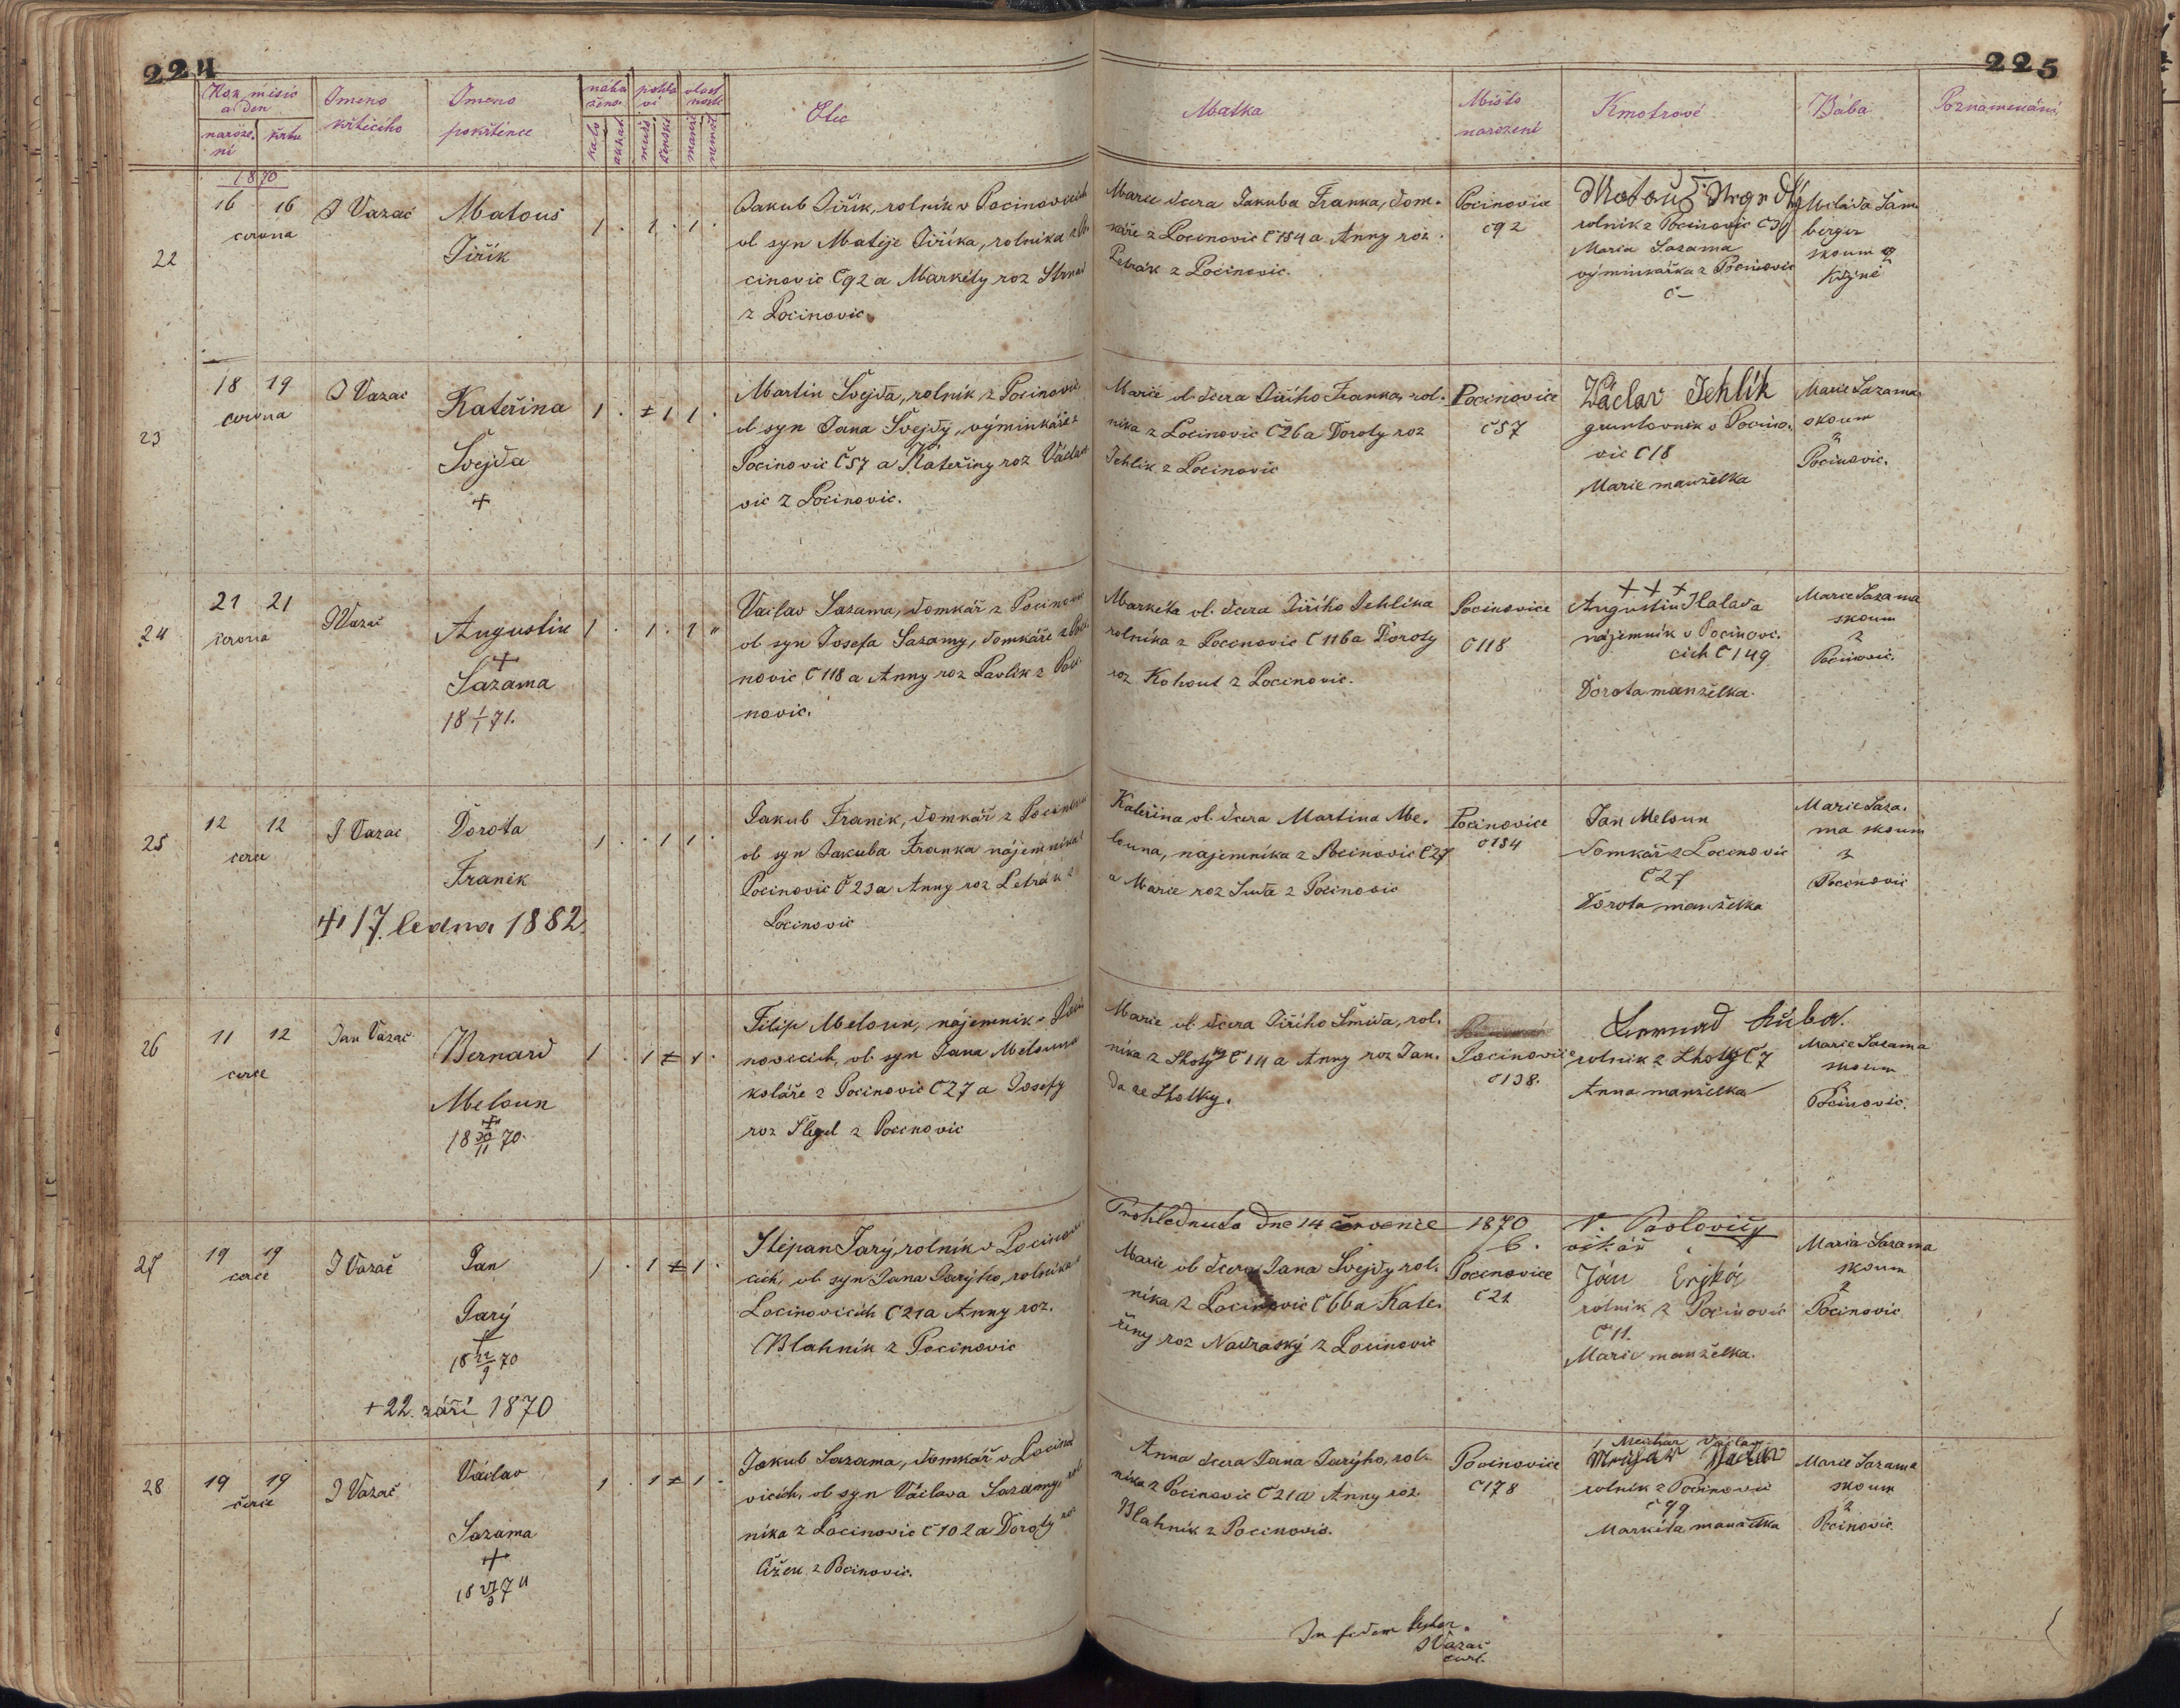 224
225
Rok, měsíc a den
naroze-
ní
křtu
Jmeno
křticího
Jmeno
pokřtěnce
nábo
žens.
kato
akkat
pohla
ví
mužs
ženské
vlast
nosti
manž
nemž
Otec
Matka
Místo
narození
Kmotrové
Bába
Poznamenání
1870
22
16 16
června
J Vazač
Matouš
Jiřík
1 . 1 . 1 .
Jakub Jiřík, rolník v Pocinovicích
ol syn Matěje Jiříka, rolníka z Po
cinovic Č92 a Markéty roz
z Pocinovic
Marie dcera Jakuba Franka, dom-
káře z Pocinovic Č184 a Anny roz
Petrák z Pocinovic.
Pocinovice
č92
Matouš
rolník z Pocinovic
Maria Sazama
výminkářka z Pocinovic
č –
skoum
z
Kdyně
23
18 19
června
J Vazač
Kateřina
Švejda
+
1 . ‡ 1 1 .
Martin Švejda, rolník z Pocinovic
ol syn Jana Švejdy, výminkáře z
Pocinovic Č57 a Kateřiny roz Václa
vic z Pocinovic.
Marie ol dcera Jiřího Franka, rol-
níka z Pocinovic Č26 a Doroty roz
Jehlík z Pocinovic
Pocinovice
č57
Václav Jehlík
gruntovník v Pocino-
vic č18
Marie manželka
Marie Sazama
skoum
z
Pocinovic.
24
21 21
června
J Vazač
Augustin
+
Sazama
18 1/1 71.
1 . 1 . 1 "
Václav Sazama, domkář z Pocinovic
ol syn Josefa Sazamy, domkáře z Poci-
novic Č118 a Anny roz Pavlík z Poci-
novic.
Markéta ol. dcera Jiřího Jehlíka
rolníka z Pocinovic Č116 a Doroty
roz Kohout z Pocinovic.
Pocinovice
č118
+ + +
Augustin Halada
nájemník v Pocinovi-
cích č149
Dorota manželka.
Marie Sazama
skoum
z
Pocinovic.
25
12 12
čerce
J Vazač
Dorota
Franek
+ 17. ledna 1882.
1 . . 1 1 .
Jakub Franek, domkář z Pocinovic
ol syn Jakuba Franka nájemníka z
Pocinovic č23 a Anny roz Petrák z
Pocinovic
Kateřina ol. dcera Martina Me-
louna, najemníka z Pocinovic č27
a Marie roz Suda z Pocinovic
Pocinovice
č184
Jan Meloun
domkář z Pocinovic
č27
Dorota manželka
Marie Saza-
ma skoum
z
Pocinovic
26
11 12
čerce
Jan Vazač
Bernard
Meloun
+
18 30/11 70.
1 . 1 ‡ 1 .
Filip Meloun, nájemník v Poci
novicích, ol. syn Jana Melouna
koláře z Pocinovic č27 a Josefy
roz Šlegel z Pocinovic
Marie ol. dcera Jiřího Šmída, rol-
níka z Lhotky č14 a Anny roz Jan-
da ze Lhotky.
Pocinovice
č138.
Bernard Kuba.
rolník z Lhoty č7
Anna manželka
Marie Sazama
skoum
z
Pocinovic.
Prohlednuta dne 14 července 1870
V. Pavlovský
vikář
27
19 19
čerce
J Vazač
Jan
Jarý
+
18 22/9 70
+ 22. září 1870
1 . 1 ‡ 1 .
Štěpan Jarý, rolník v Pocinovi
cích, ol. syn Jana Jarýho, rolníka v
Pocinovicích č21 a Anny roz.
Blahník z Pocinovic
Marie ol dcera Jana Švejdy rol-
níka z Pocinovic č66 a Kate-
řiny roz Nadraský z Pocinovic
Pocinovice
č21
Ján
rolník z Pocinovic
č11.
Marie manželka.
Maria Sazama
skoum
z
Pocinovic
28
19 19
čerce
J Vazač
Václav
Sazama
+
1 . 1 ‡ 1 .
Jakub Sazama, domkář v Pocino
vicích, ol syn Václava Sazamy, rol
níka z Pocinovic č102 a Doroty roz
Čížen z Pocinovic.
Anna dcera Jana Jarýho, rol-
níka z Pocinovic č21 a Anny roz
Blahník z Pocinovic.
Pocinovice
č178
Václav
rolník z Pocinovic
č99
Markéta manželka
Marie Sazama
skoum
z
Pocinovic.
In fidem
J Vazač